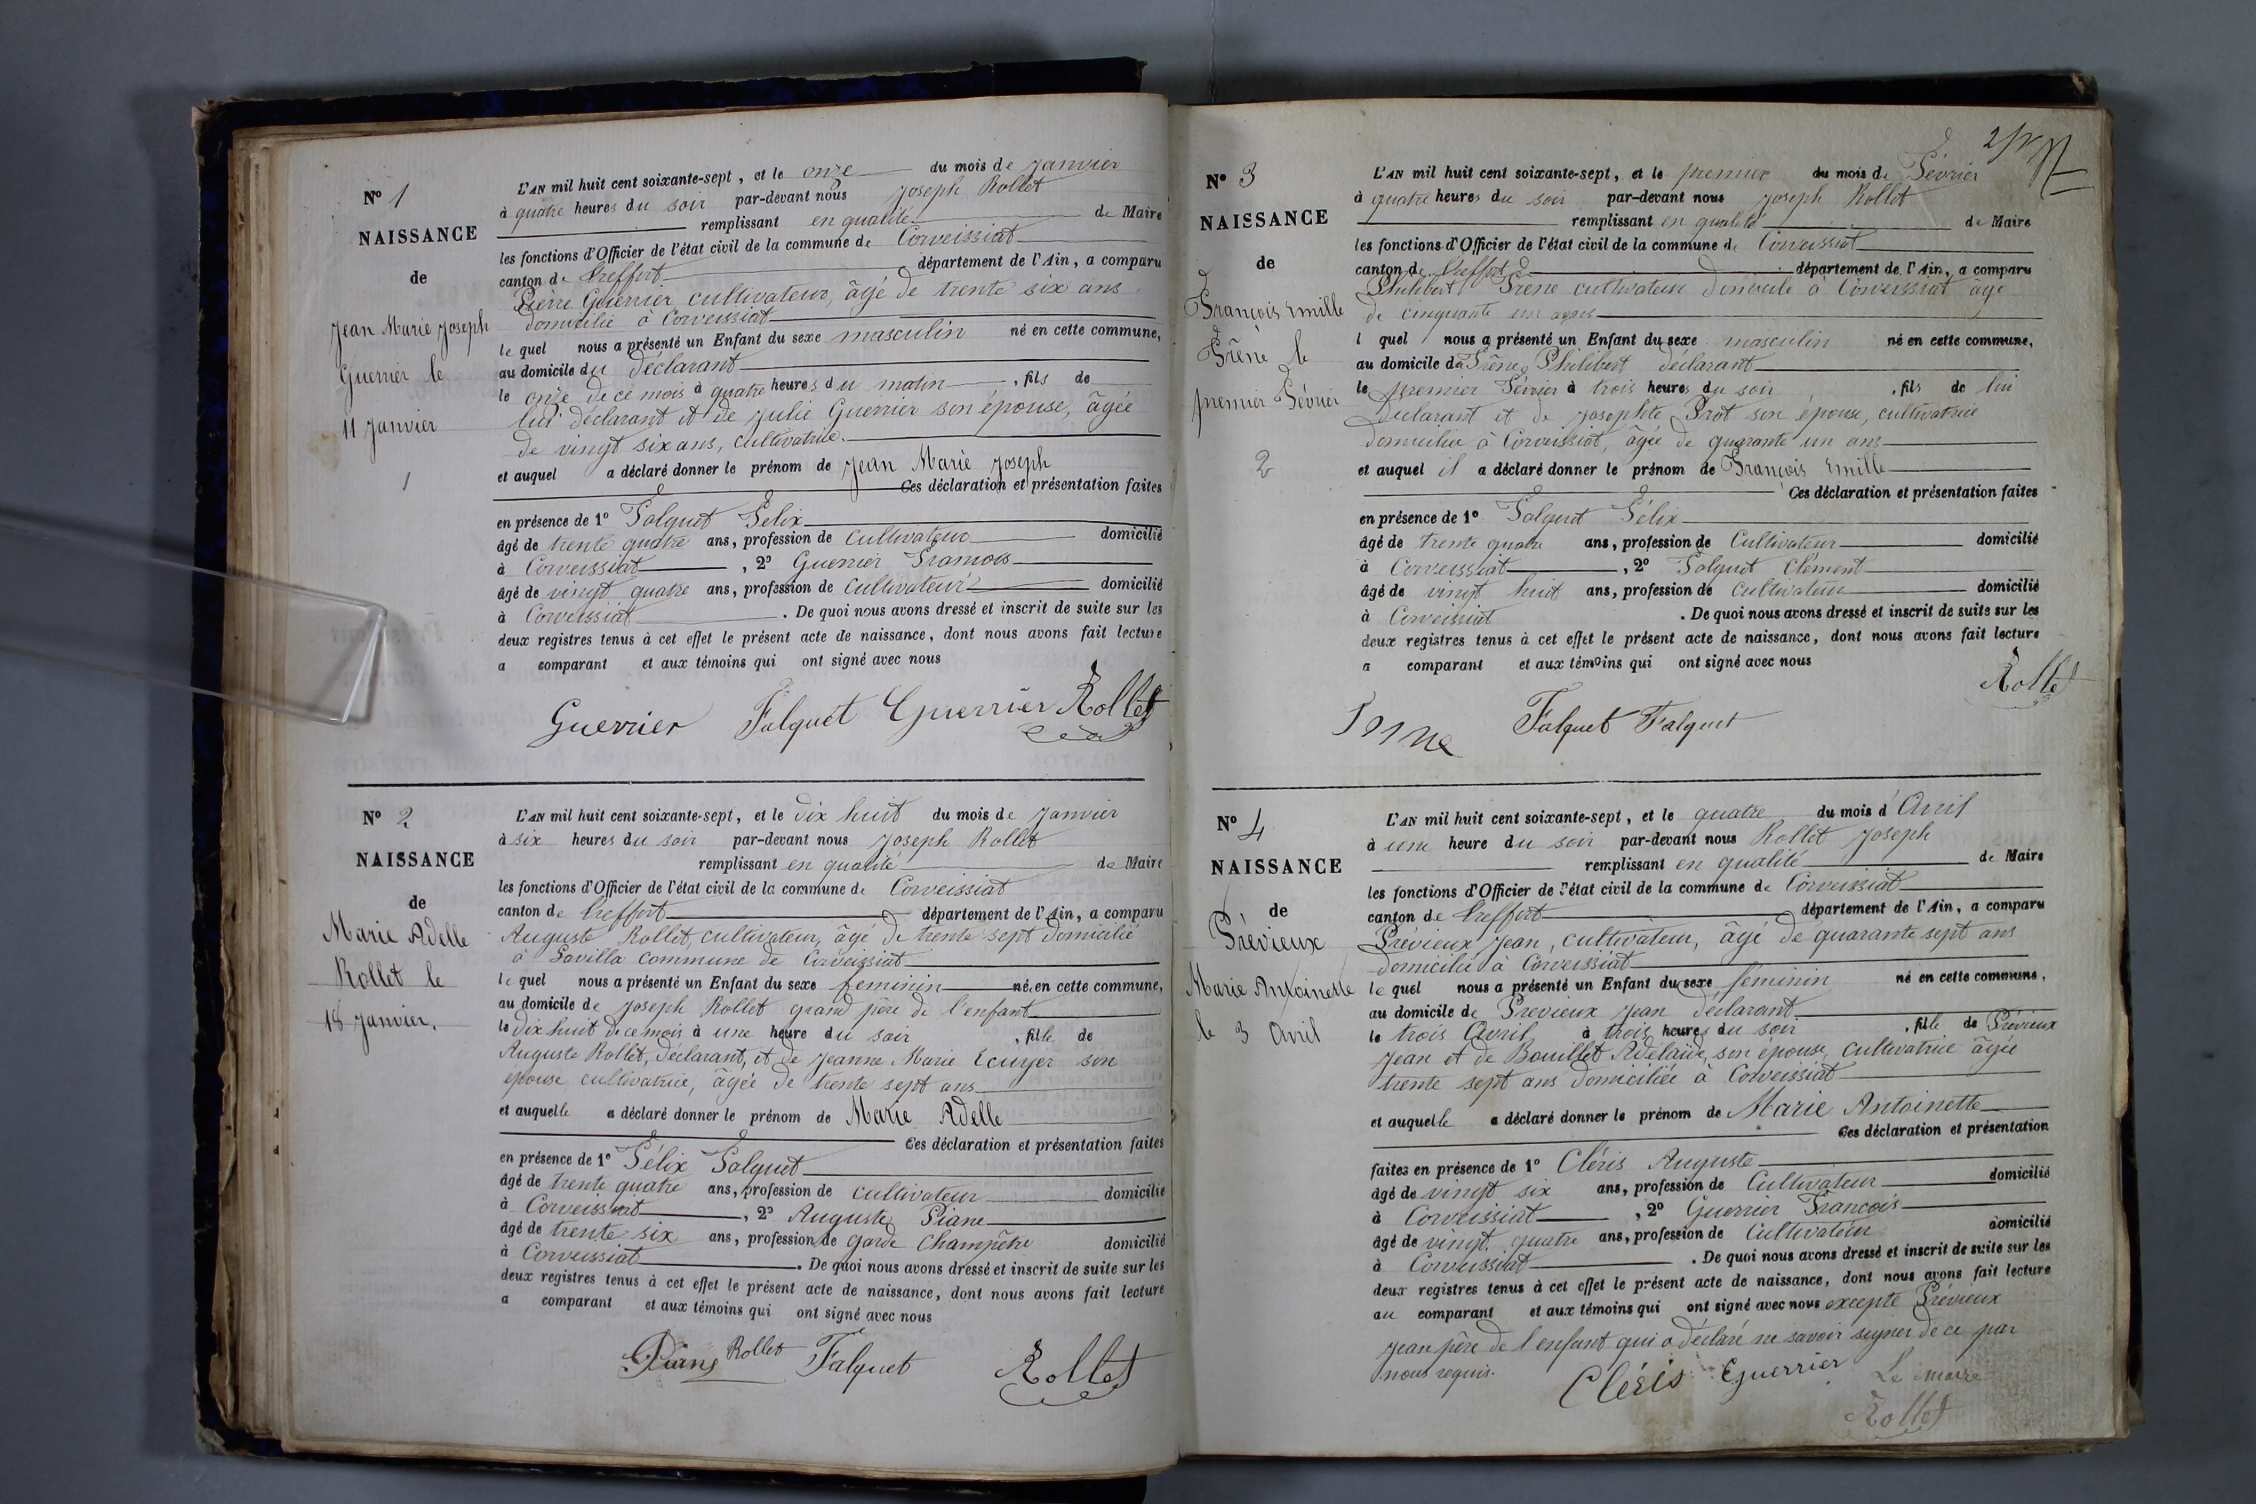 Nº 1
NAISSANCE
de
Jean Marie Joseph
Guerrier le
11 Janvier
1
L'AN mil huit cent soixante-sept, et le onze du mois de Janvier
à quatre heures du soir par-devant nous Joseph Rollet
remplissant en qualité de Maire
les fonctions d'Officier de l'état civil de la commune de Corveissiat
canton de Treffort département de l'Ain, a comparu
Pierre Guerrier, cultivateur, âgé de trente six ans
domicilié à Corveissiat
le quel nous a présenté un Enfant du sexe masculin né en cette commune,
au domicile du déclarant
le onze de ce mois à quatre heures du matin , fils de
lui déclarant et de Julie Guerrier son épouse, âgée
de vingt six ans, cultivatrice.
et auquel a déclaré donner le prénom de Jean Marie Joseph
Ces déclaration et présentation faites
en présence de 1º Falquet Félix
âgé de trente quatre ans, profession de cultivateur domicilié
à Corveissiat , 2º Guerrier Francois
âgé de vingt quatre ans, profession de cultivateur domicilié
à Corveissiat . De quoi nous avons dressé et inscrit de suite sur les
deux registres tenus à cet effet le présent acte de naissance, dont nous avons fait lecture
a comparant et aux témoins qui ont signé avec nous
Guerrier Falquet Guerrier Rollet
Nº 2
NAISSANCE
de
Marie Adelle
Rollet le
18 Janvier.
L'AN mil huit cent soixante-sept, et le dix huit du mois de Janvier
à six heures du soir par-devant nous Joseph Rollet
remplissant en qualité de Maire
les fonctions d'Officier de l'état civil de la commune de Corveissiat
canton de Treffort département de l'Ain, a comparu
Auguste Rollet, cultivateur, âgé de trente sept domicilié
à Lavilla commune de Corveissiat
le quel nous a présenté un Enfant du sexe feminin né en cette commune,
au domicile de Joseph Rollet grand père de l'enfant
le dix huit de ce mois à une heure du soir , fille de
Auguste Rollet, déclarant, et de Jeanne Marie Ecuyer son
épouse cultivatrice, âgée de trente sept ans
et auquelle a déclaré donner le prénom de Marie Adelle
Ces déclaration et présentation faites
en présence de 1º Félix Falquet
âgé de trente quatre ans, profession de cultivateur domicilié
à Corveissiat , 2º Auguste Piane
âgé de trente six ans, profession de garde Champêtre domicilié
à Corveissiat . De quoi nous avons dressé et inscrit de suite sur les
deux registres tenus à cet effet le présent acte de naissance, dont nous avons fait lecture
a comparant et aux témoins qui ont signé avec nous
Rollet Falquet Rollet
Nº 3
NAISSANCE
de
François Emille
Frêne le
premier Février
2
L'AN mil huit cent soixante-sept, et le premier du mois de Février
à quatre heures du soir par-devant nous Joseph Rollet
remplissant en qualité de Maire
les fonctions d'Officier de l'état civil de la commune de Corveissiat
canton de Treffort département de l'Ain, a comparu
Philibert Frêne cultivateur domicilié à Corveissiat âgé
de cinquante
l quel nous a présenté un Enfant du sexe masculin né en cette commune,
au domicile de Frêne Philibert déclarant
le premier Février à trois heures du soir , fils de lui
Déclarant et de Josephte Prot son épouse, cultivatrice
domiciliée à Corveissiat, âgée de quarante un ans
et auquel il a déclaré donner le prénom de François Emille
Ces déclaration et présentation faites
en présence de 1º Falquet Félix
âgé de trente quatre ans, profession de Cultivateur domicilié
à Corveissiat , 2º Falquet Clément
âgé de vingt huit ans, profession de cultivateur domicilié
à Corveissiat . De quoi nous avons dressé et inscrit de suite sur les
deux registres tenus à cet effet le présent acte de naissance, dont nous avons fait lecture
a comparant et aux témoins qui ont signé avec nous
Rollet
Falquet Falquet
Nº 4
NAISSANCE
de
Prévieux
Marie Antoinette
le 3 Avril
L'AN mil huit cent soixante-sept, et le quatre du mois d'Avril
à une heure du soir par-devant nous Rollet Joseph
remplissant en qualité de Maire
les fonctions d'Officier de l'état civil de la commune de Corveissiat
canton de Treffort département de l'Ain, a comparu
Prévieux Jean, cultivateur, âgé de quarante sept ans
domicilié à Corveissiat
le quel nous a présenté un Enfant du sexe féminin né en cette commune,
au domicile de Prévieux Jean déclarant
le trois Avril à trois heures du soir , fille de Prévieux
Jean et de Bouillet Adelaïde, son épouse, cultivatrice âgée
trente sept ans domiciliée à Corveissiat
et auquelle a déclaré donner le prénom de Marie Antoinette
Ces déclaration et présentation
faites en présence de 1º Cléris Auguste
âgé de vingt six ans, profession de Cultivateur domicilié
à Corveissiat , 2º Guerrier François
âgé de vingt quatre ans, profession de Cultivateur domicilié
à Corveissiat . De quoi nous avons dressé et inscrit de suite sur les
deux registres tenus à cet effet le présent acte de naissance, dont nous avons fait lecture
au comparant et aux témoins qui ont signé avec nous excepté Prévieux
Jean père de l'enfant qui a déclaré ne savoir signer de ce par
nous requis.
Cléris Guerrier Le maire
Rollet